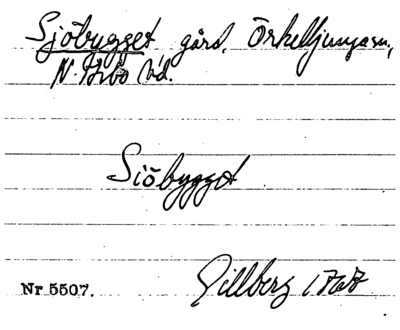 Sjöbygget gård, Örkelljunga sn,
N. Åsbo hd.
Siöbygget
Gillberg 1767
Nr 5507.